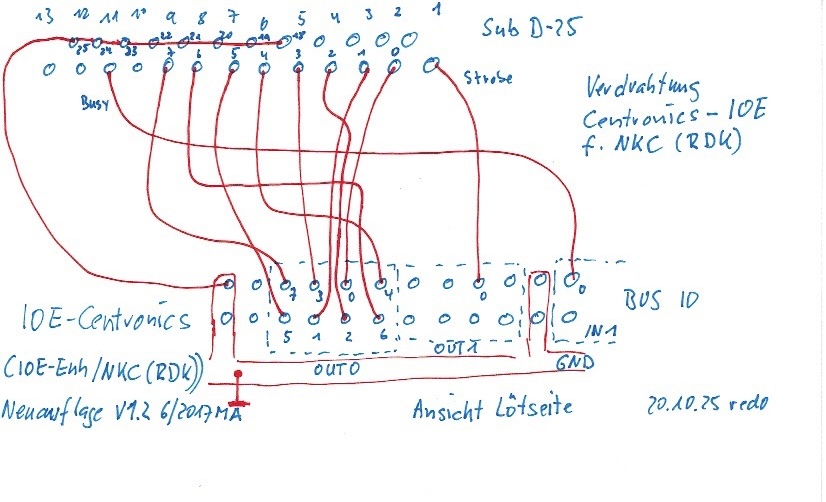 13 12 11 10 9 8 7 6 5 4 3 2 1
Sub D-25
25 24 23 22 21 20 19 18
7 6 5 4 3 2 1 0
Strobe
Busy
Verdrahtung
Centronics-IOE
f. NKC (RDK)
7 3 0 4 0 0
BUS IO
IOE-Centronics
5 1 2 6 IN1
OUT1
CIOE-Enh/NKC(RDK))
OUT0
GND
Neuauflage V1.2 6/2017MA
Ansicht Lötseite
20.10.25 redo